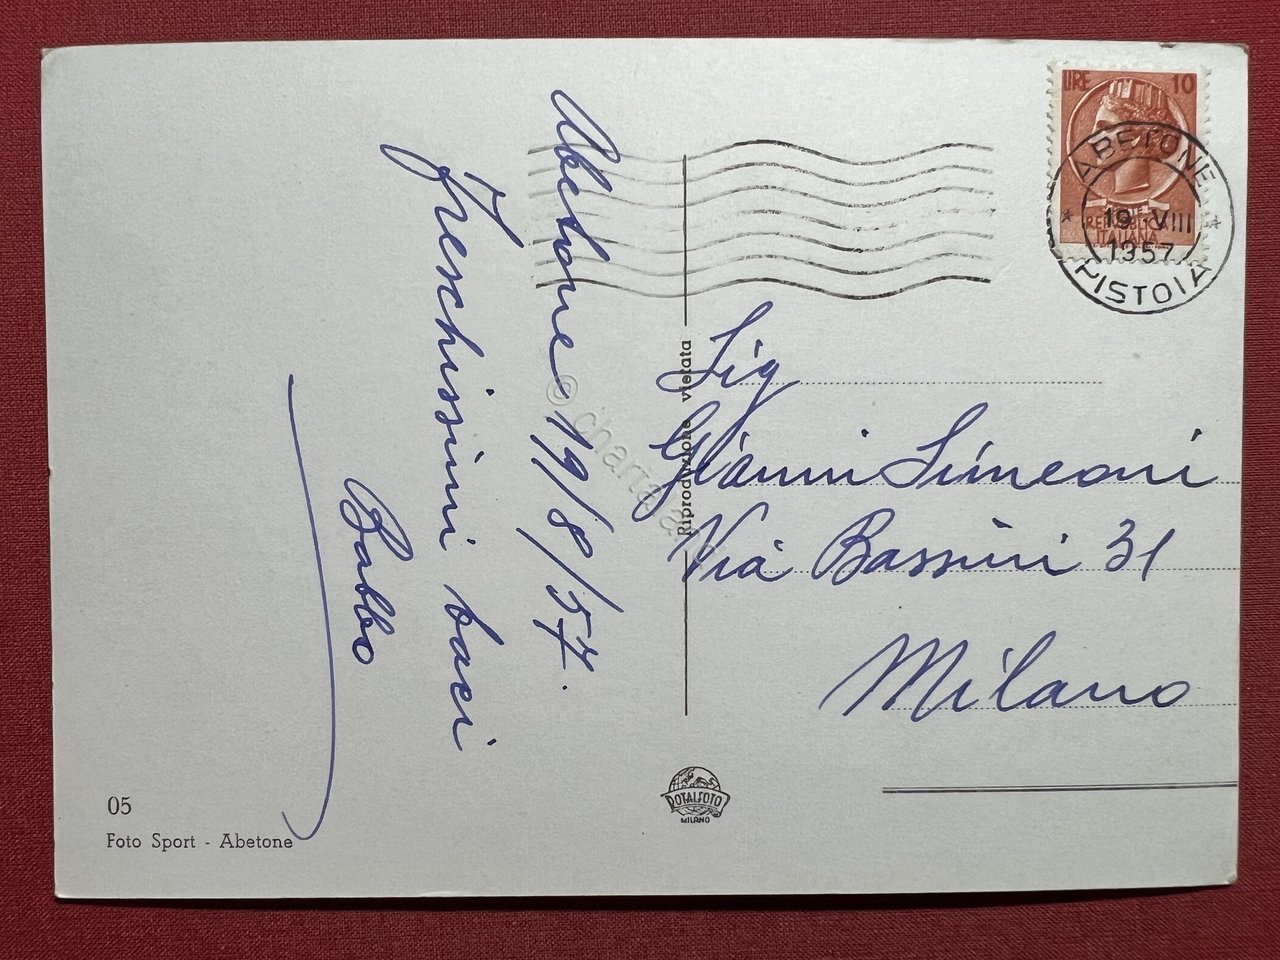 Abetone, 19/8/57.
Freschissimi baci
Babbo
LIRE 10
REPUBBLICA
ITALIANA
ABETONE
19·VIII
1957
PISTOIA
Sig
Gianni Simeoni
Via Bassini 31
Milano
Riproduzione vietata
ROTALFOTO
MILANO
05
Foto Sport - Abetone